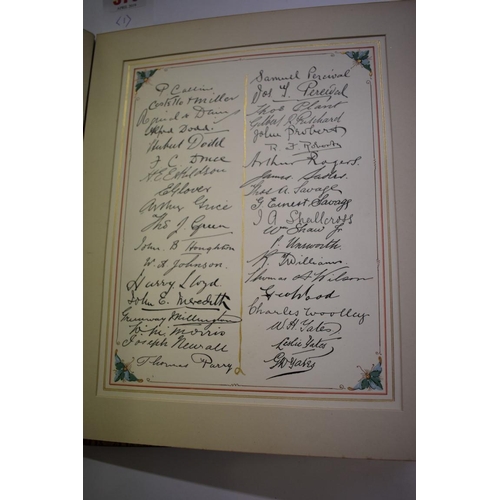 (1)
P.
Miller
Dodd.
Hubert Dodd
F C Bruce
Huldson
E Glover
Arthur Grice
Thos J Green
John. B Houghton
W A Johnson.
Harry Lloyd
John E. Meredith
Greenway Millington
Morris
Joseph Newall
Thomas Parry
Samuel Percival
Jos T. Percival
Thos Plant
Gilbert J. Pritchard
John Probert
R F Roberts
Arthur Rogers.
James Sales.
Thos A. Savage
G Ernest Savage
J A Shallcross
Wm Shaw Jr
P. Unsworth
K. Williams.
Thomas H Wilson
Wood
Charles Woolley
W. H. Yates
Leslie Yates
Yates